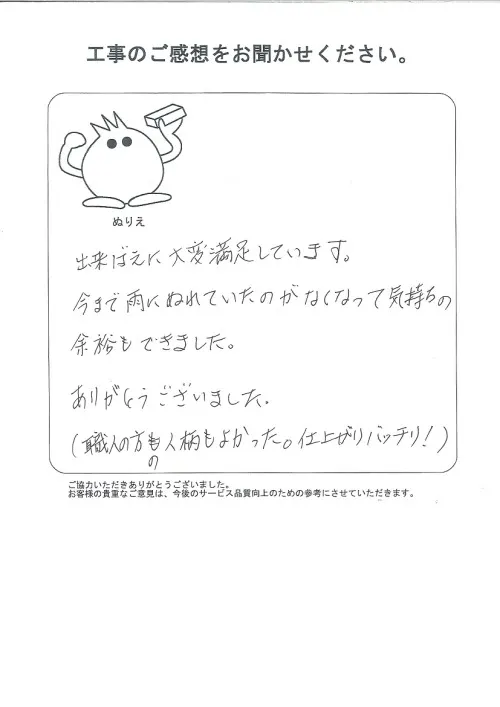 工事のご感想をお聞かせください。
ぬりえ
出来ばえに大変満足しています。
今まで雨にぬれていたのがなくなって気持ちの
余裕もできました。
ありがとうございました。
(職人の方の人柄もよかった。仕上がりバッチリ!)
ご協力いただきありがとうございました。
お客様の貴重なご意見は、今後のサービス品質向上のための参考にさせていただきます。